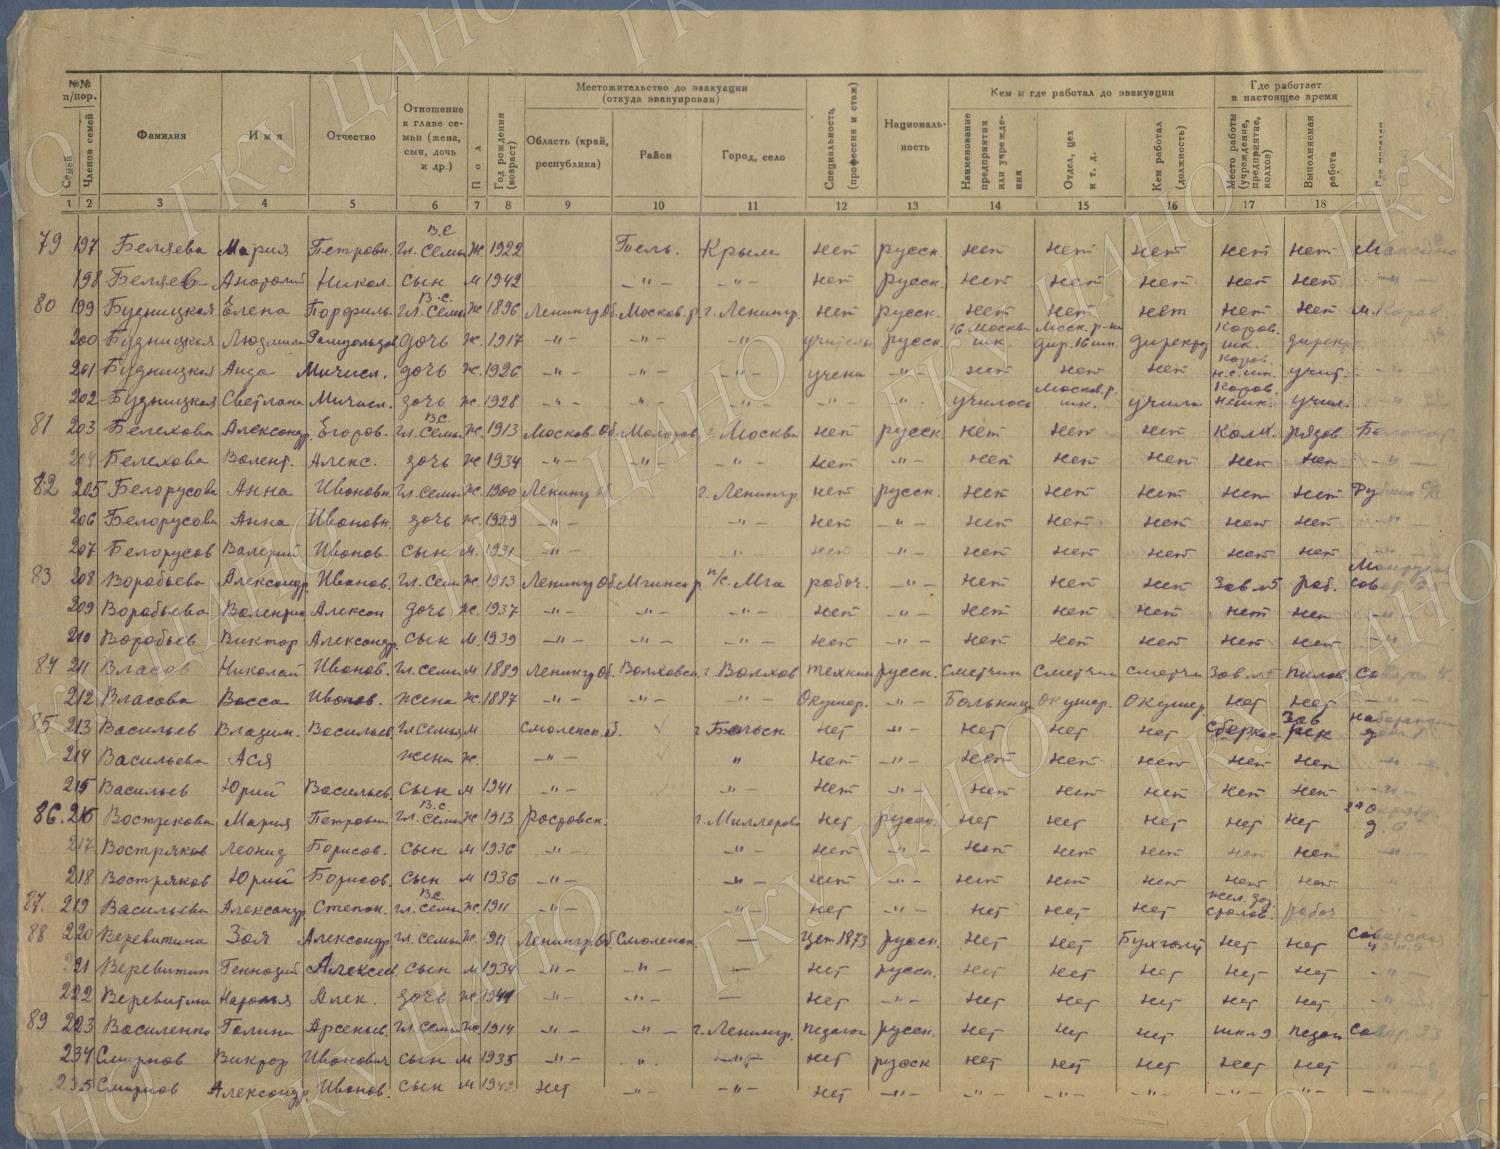 №№ п/пор.
Семей
Членов семей
Фамилия
Имя
Отчество
Отношение к главе семьи (жена, сын, дочь и др.)
Пол
Год рождения (возраст)
Местожительство до эвакуации (откуда эвакуирован)
Область (край, республика)
Район
Город, село
Специальность (профессия и стаж)
Националь-ность
Кем и где работал до эвакуации
Наименование предприятия или учреждения
Отдел, цех и т. д.
Кем работал (должность)
Где работает в настоящее время
Место работы (учреждение, предприятие, колхоз)
Выполняемая работа
1 2 3 4 5 6 7 8 9 10 11 12 13 14 15 16 17 18
79 197 Беляева Мария Петровн. В.С гл. семьи Ж 1922 Тель. Крым нет русск нет нет нет нет нет
198 Беляев Анатолий Никол. сын м 1942 -"- -"- нет русск. нет нет нет нет нет -"-
80 199 Будницкая Елена Порфиль. В.С. гл. семьи Ж 1896 Ленингр Об. Москов. р. г. Ленингр. нет русск. нет нет нет нет нет
200 Будницкая Людмила дочь ж. 1917 -"- -"- -"- учитель русск. 16 Москвы шк. Моск. р-на дир. 16 шк. директ Коров. шк. дирек
201 Будницкая Аида Мичисл. дочь ж. 1926 -"- -"- -"- учени -"- нет нет нет Коров. н.с. шк. учит.
202 Будницкая Светлана Мичисл. дочь ж. 1928 -"- -"- -"- -"- -"- училось Москов р. шк. учила Коров. учил.
81 203 Белехова Александр. Егоров. В.С гл. семьи Ж. 1913 Москов. Об. Молотов г. Москва нет русск. нет нет нет колх. рядов
204 Белехова Валент. Алекс. дочь ж 1934 -"- -"- -"- нет -"- нет нет нет нет нет -"-
82 205 Белорусова Анна Ивановн. гл. семьи ж. 1900 Ленингр об г. Ленингр нет русск. нет нет нет нет нет
206 Белорусова Анна Ивановн. дочь ж. 1929 -"- -"- нет -"- нет нет нет нет нет -"-
207 Белорусов Валерий Иванов. сын м. 1931 -"- -"- нет -"- нет нет нет нет нет -"-
83 208 Воробьева Александр. Иванов. гл. семьи Ж. 1913 Ленингр Об. Мгинск р. п/с. Мга рабоч. -"- нет нет нет Зав №5 раб.
209 Воробьева Валентин Алексан дочь ж. 1937 -"- -"- -"- нет -"- нет нет нет нет нет -"-
210 Воробьев Виктор Александр. сын м. 1939 -"- -"- -"- нет -"- нет нет нет нет нет -"-
84 211 Власов Николай Иванов. гл. семьи м 1889 Ленингр Об. Волховск. г. Волхов техник русск. Сметчик Сметчик сметчи Зав №5 пилов.
212 Власова Васса Иванов. жена ж. 1887 -"- -"- -"- Окушер. -"- Больниц Окушер. Окушер нет нет -"-
85 213 Васильев Владим. Васильев. гл семьи м Смоленск. об. г. Бельск нет -"- нет нет нет сберкас Зав рек
214 Васильева Ася жена ж. -"- " нет -"- нет нет нет нет нет -"-
215 Васильев Юрий Васильев. сын м 1941 -"- -"- нет -"- нет нет нет нет нет -"-
86. 216 Вострекова Мария Петровн В.С. гл. семьи ж 1913 Ростовск. г. Миллерово нет русск. нет нет нет нет нет
217 Востряков Леонид Борисов. сын м 1936 -"- -"- нет -"- нет нет нет нет нет -"-
218 Востряков Юрий Борисов. сын м 1936 -"- -"- нет -"- нет нет нет нет нет "
87. 219 Васильева Александр. Степан. В.С. гл. семьи Ж. 1911 -"- -"- нет -"- нет нет нет Жел. дор столов. рабоч -"-
88 220 Веревитина Зоя Александр. гл. семьи Ж. 1911 Ленингр. Об. Смоленск. — русск. нет нет Бухгалт нет нет
221 Веревитин Геннадий Алексеев. сын м 1934 -"- -"- — нет русск. нет нет нет нет нет -"-
222 Веревитина Наталья Алек. дочь ж 1941 -"- -"- — нет -"- нет нет нет нет нет -"-
89 223 Василенко Галина Арсеньев. гл. семьи ж. 1914 -"- -"- г. Ленингр. педагог русск. нет нет нет шк №9 педаг
234 Смирнов Виктор Иванович сын м 1935 -"- " -"- нет русск нет нет нет нет нет
235 Смирнов Александр. Иванов. сын м 1942 нет -"- -"- нет -"- -"- -"- -"- -"- -"-
ГКУ ЦАНО